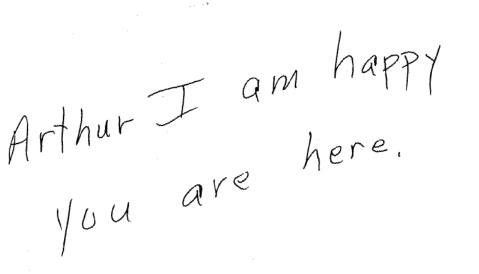 Arthur I am happy
you are here.